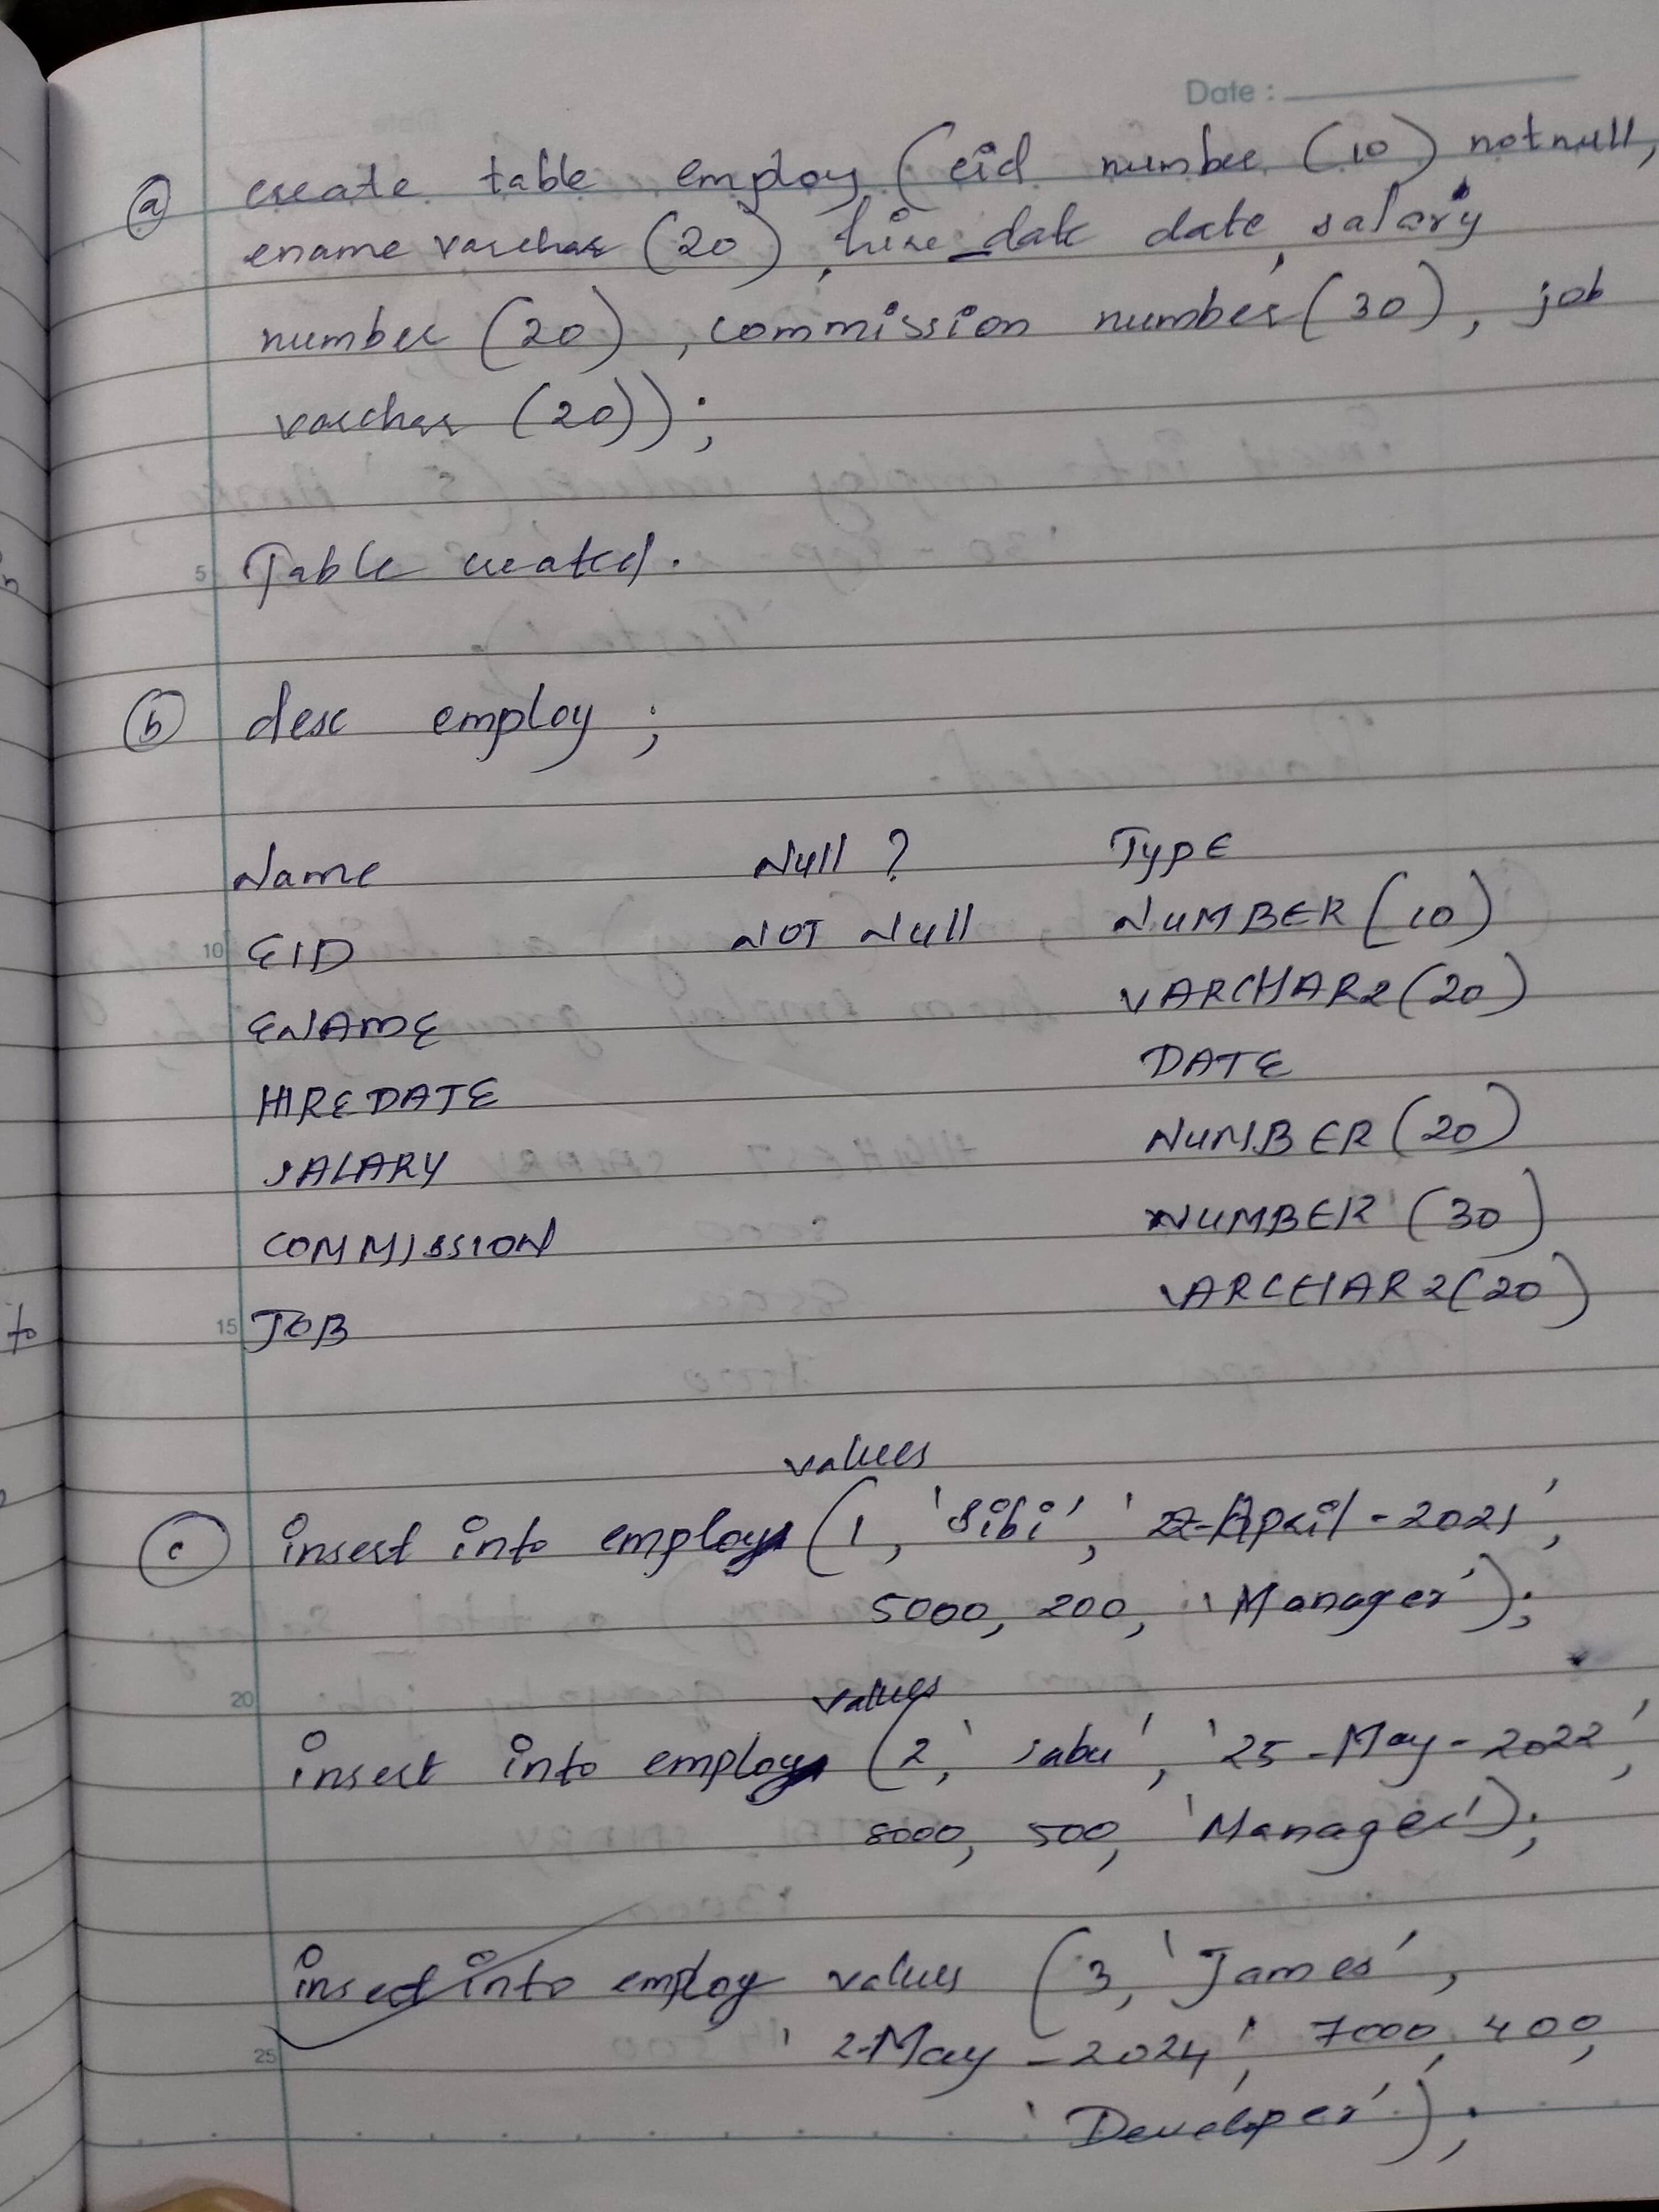 Date :
(a) create table employ (eid number (10) notnull,
ename varchar (20), hire_date date, salary
number (20), commission number (30), job
varchar (20));
5 Table created.
(b) desc employ ;
Name Null ? Type
10 EID NOT Null NUMBER (10)
ENAME VARCHAR2 (20)
HIREDATE DATE
SALARY NUMBER (20)
COMMISSION NUMBER (30)
15 JOB VARCHAR2 (20)
values
(c) insert into employ (1, 'Sibi', '-April-2021',
5000, 200, 'Manager');
20 values
insert into employ (2, 'sabu', '25-May-2022',
8000, 500, 'Manager');
insert into employ values (3, 'James',
25 '2-May-2024', 7000, 400,
'Developer');
to